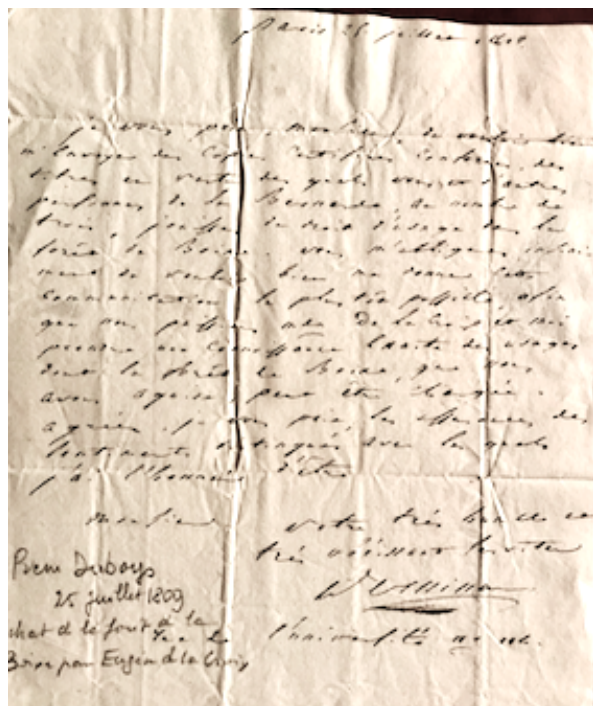 Paris 25 juillet 1809
je vous prie, monsieur, de vouloir bien
m'envoyer des copies certifiées conformes, des
titres en vertu des quels vous et d'autres
personnes de la au nombre de
trois, jouissez du droit d'usage dans la
forêt de Boixe. vous m'obligerez
de vouloir bien me donner cette
communication le plus tôt possible, afin
que nous puissions de la Croix et moi
prendre une connoissance exacte des usages
dont la forêt de Boixe, que nous
avons acquise, peut être chargée.
agréez, je vous prie, les assurances des
sentiments distingués avec les quels
j'ai l'honneur d'être
monsieur votre très humble et
très obéissant serviteur
Prem Duboys
25 juillet 1809
achat de la forêt de la
Boixe par Eugène de la Croix